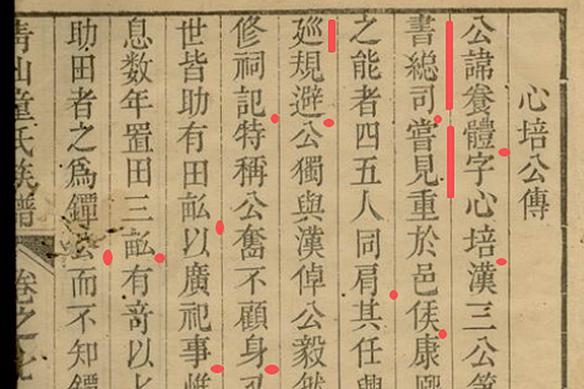 心培公傳
公諱養體字心培漢三公第
書總司嘗見重於邑侯康熙
之能者四五人同肩其任興
巡規避公獨與漢倬公毅然
修祠記特稱公奮不顧身
世皆助有田畝以廣祀事惟
息数年置田三畝有竒以
助田者之爲鐔公而不知鐔
青山童氏族譜 卷之七